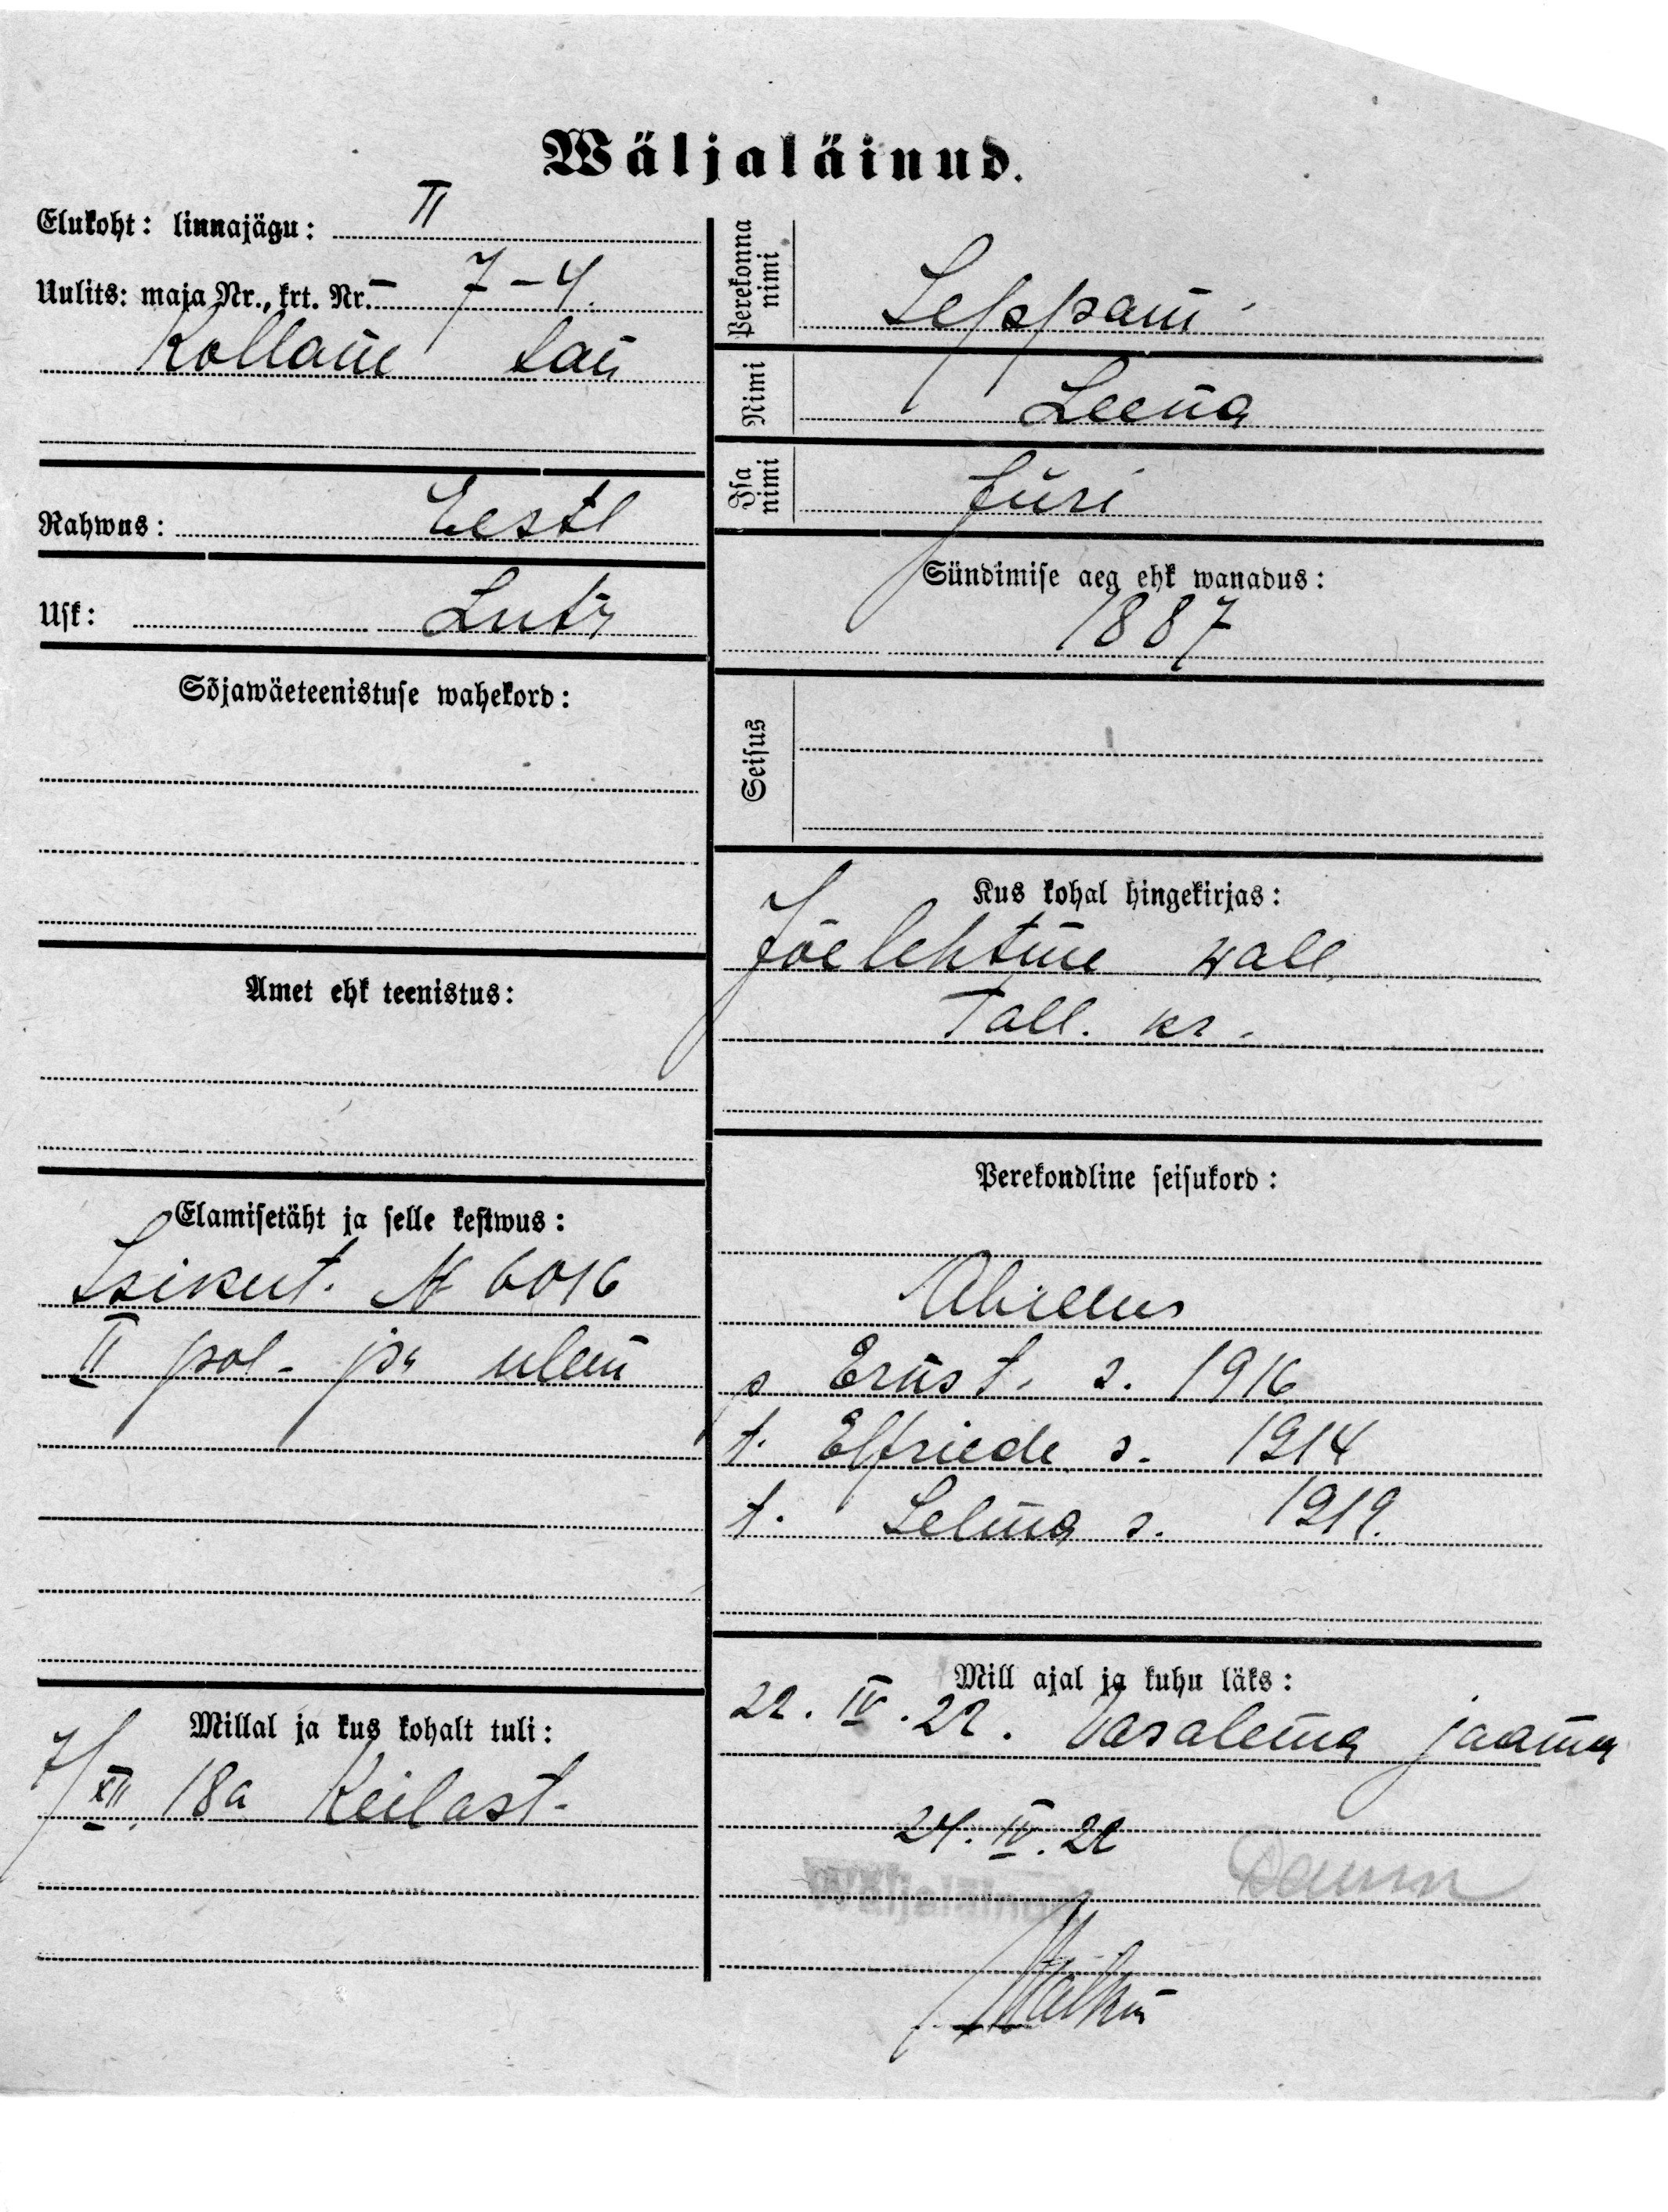 Wäljaläinud.
Elukoht: linnajägu: II
Uulits: maja Nr., krt. Nr. – 7 – 4.
Kollane tän
Rahwus: Eestl
Usk: Lutr
Sõjawäeteenistuse wahekord:
Amet ehk teenistus:
Elamisetäht ja selle kestwus:
Isikut. № 6016
II pol. jsk ülem
Millal ja kus kohalt tuli:
7/XII 18a Keilast.
Perekonna nimi
Seppam
Nimi
Leena
Isa nimi
Jüri
Sündimise aeg ehk wanadus:
1887
Seisus
Kus kohal hingekirjas:
Jõelehtme wall
Tall. kr.
Perekondline seisukord:
Abielus
p Ernst. s. 1916
t. Elfriede s. 1914
t. Selma s. 1919.
Mill ajal ja kuhu läks:
22. IV. 22. Vasalemma jaama
24. IV. 22
Wäljaläinud